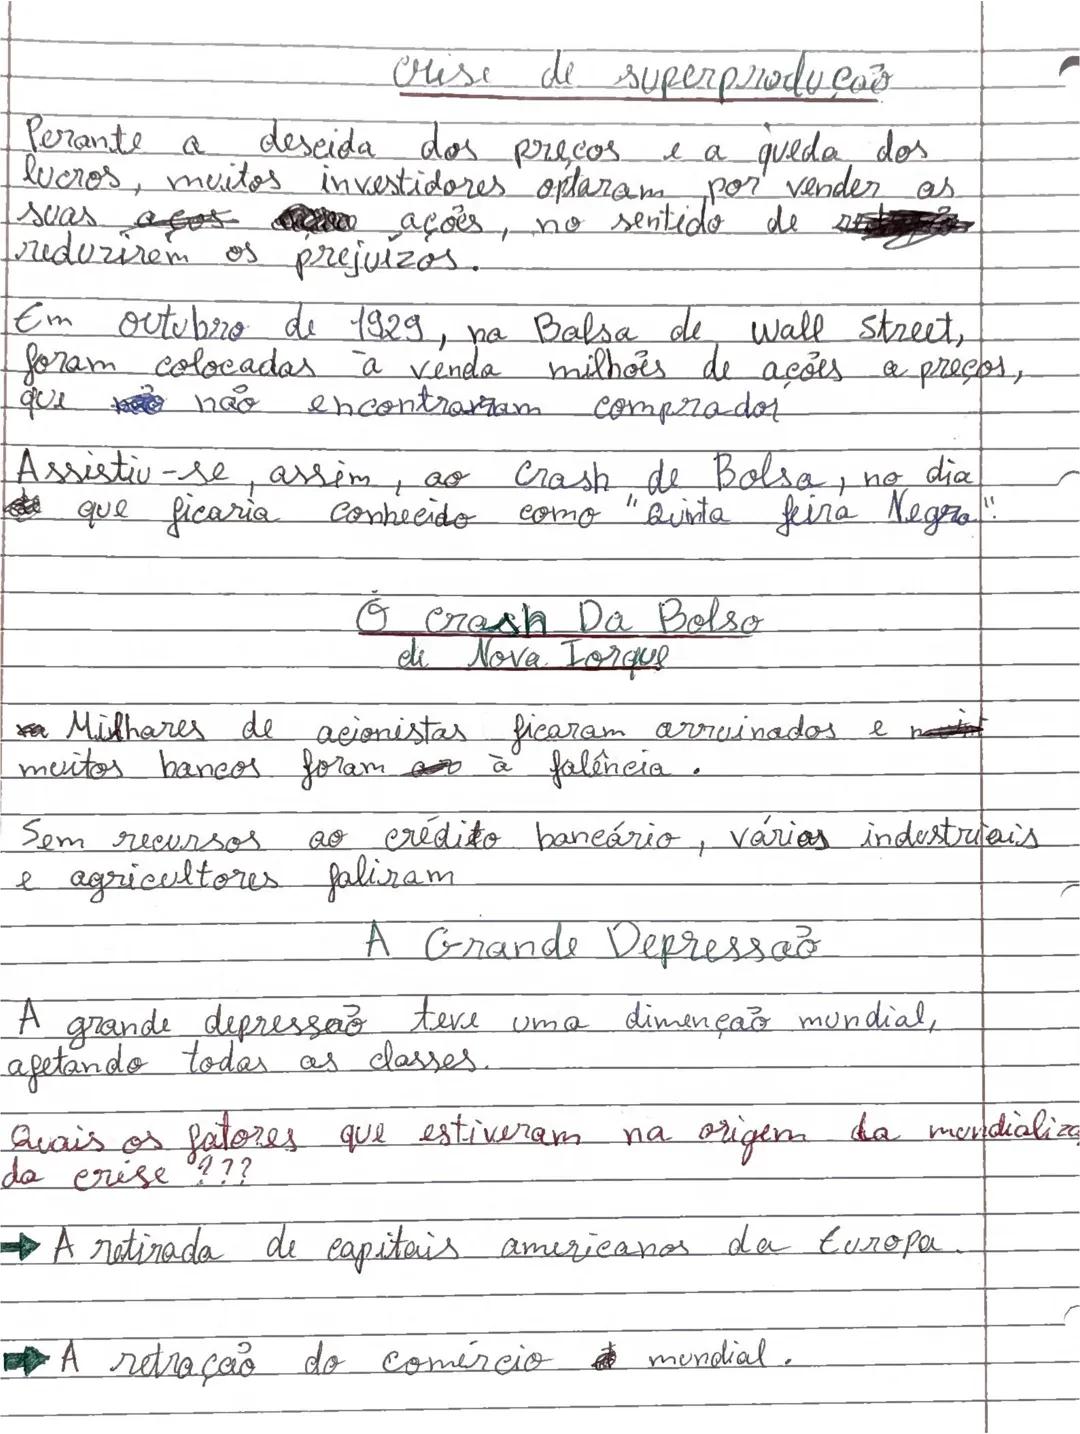 Crise de superprodução
Perante a descida dos preços e a queda dos
lucros, muitos investidores optaram por vender as
suas ações, no sentido de
reduzirem os prejuízos.
Em outubro de 1929, na Balsa de Wall Street,
foram colocadas à venda milhões de ações a preços,
que não encontraram comprador
Assistiu-se, assim, ao Crash de Bolsa, no dia
que ficaria conhecido como "Quinta feira Negra".
O crash Da Bolso
de Nova Iorque
Milhares de acionistas ficaram arruinados e
muitos bancos foram à falência.
Sem recursos ao crédito bancário, várias industriais
e agricultores faliram
A Grande Depressão
A grande depressão teve uma dimenção mundial,
afetando todas as classes.
Quais os fatores que estiveram na origem da mundializa
da crise ???
→ A retirada de capitais americanos da Europa.
→ A retração do comércio mundial.